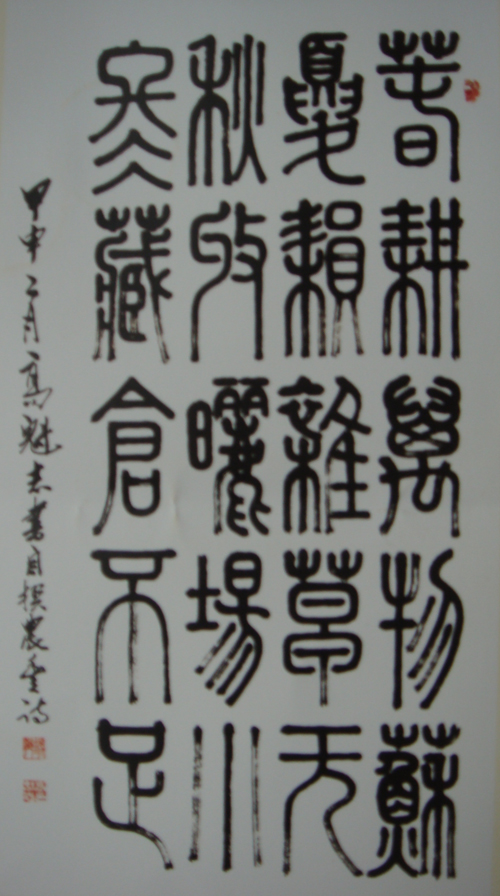 春耕萬物蘇
夏雜草无
秋收曬場小
冬藏倉不足
甲申二月高魁志書自撰農詩